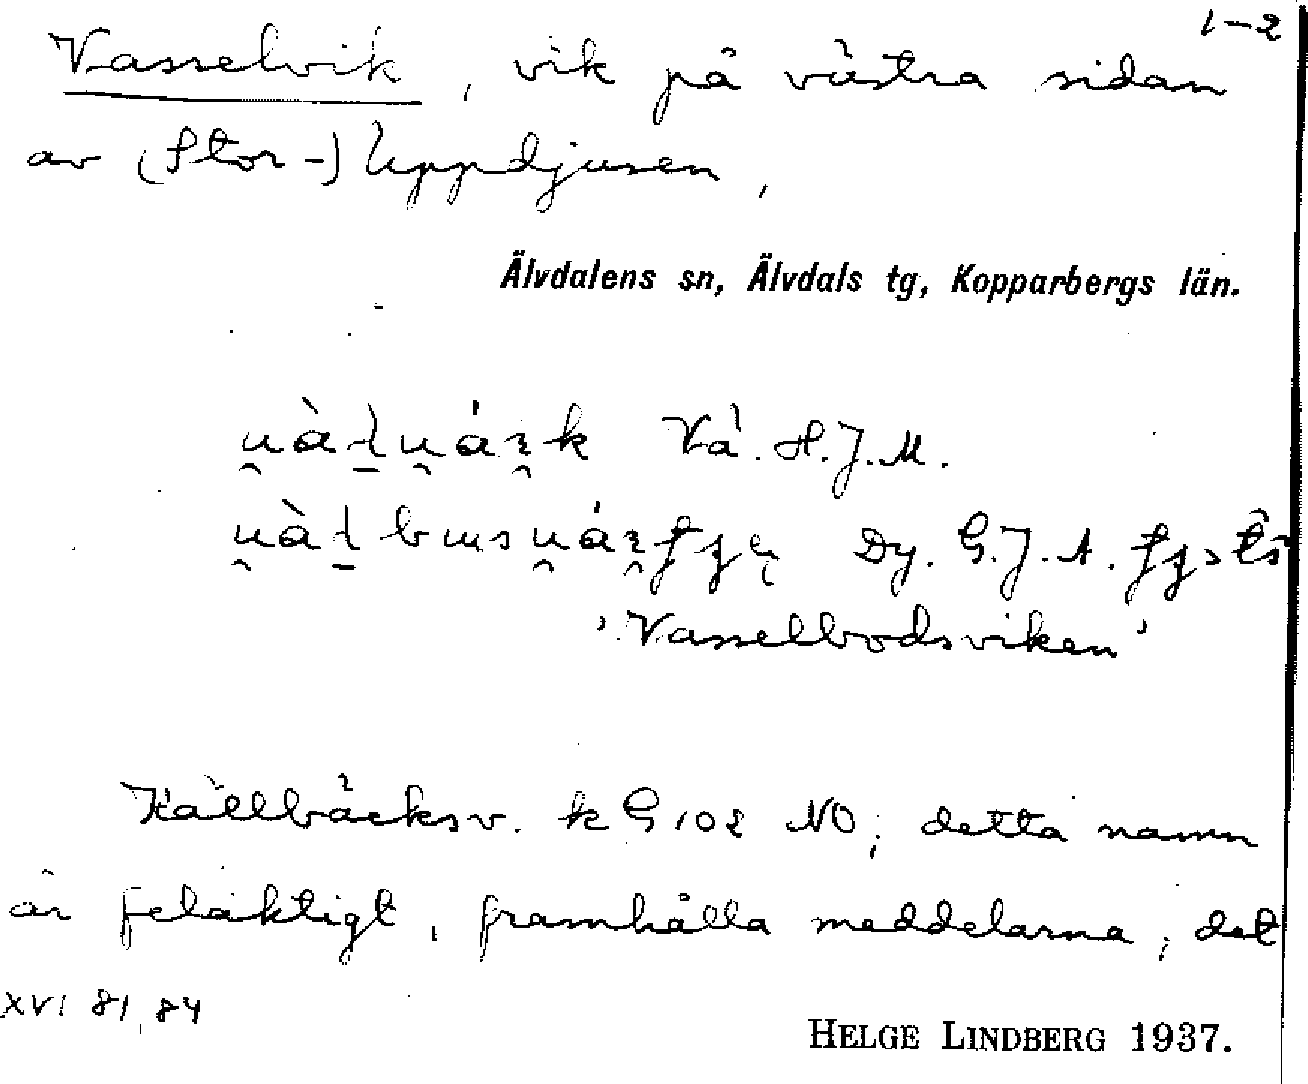 1-2
Vasselvik, vik på västra sidan
av (Stor-) Uppdjusen,
Älvdalens sn, Älvdals tg, Kopparbergs län.
Vä. H.J.M.
Dy. G.J.A.
'Vasselbodsviken'
Källbäcksv. k G 102 NO; detta namn
är felaktigt, framhålla meddelarna; det
XVI 81, 84
HELGE LINDBERG 1937.